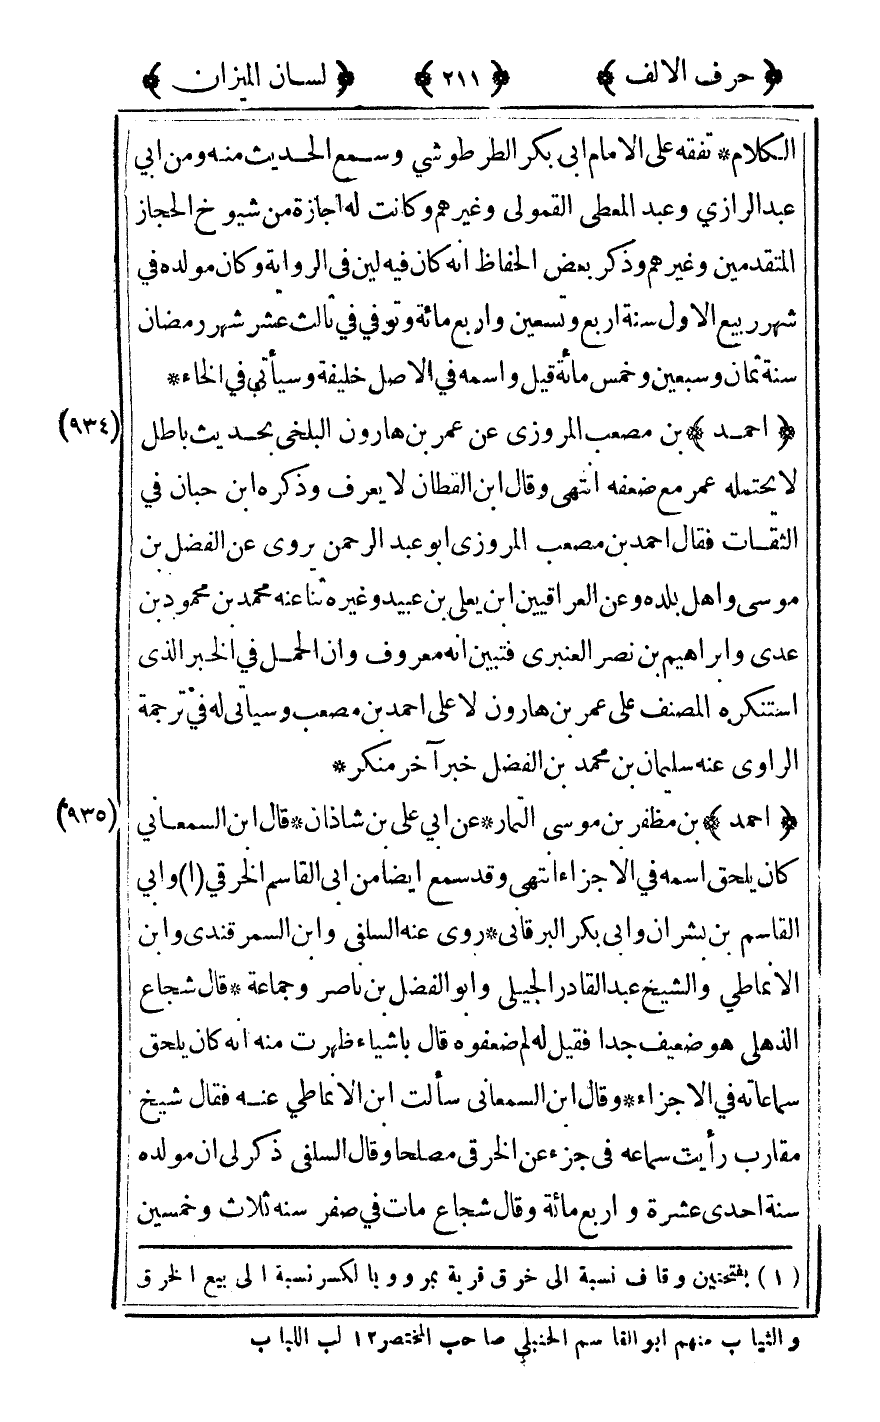 ﴿ حرف الالف ﴾ ﴿ ٢١١ ﴾ ﴿ لسان الميزان ﴾
الكلام* تفقه على الامام ابى بكر الطرطوشي وسمع الحديث منه ومن ابي
عبد الرازي وعبد المعطى القمولى وغيرهم وكانت له اجازة من شيوخ الحجاز
المتقدمين وغيرهم وذكر بعض الحفاظ انه كان فيه لين فى الرواية وكان مولده في
شهر ربيع الاول سنة اربع وتسعين واربع مائة وتوفي في ثالث عشر شهر رمضان
سنة ثمان وسبعين وخمس مأئة قيل واسمه في الاصل خليفة وسيأتي في الخاء*
﴿ احمد ﴾ بن مصعب المروزى عن عمر بن هارون البلخى بحديث باطل (٩٣٤)
لا يحتمله عمر مع ضعفه انتهى وقال ابن القطان لا يعرف وذكره ابن حبان في
الثقات فقال احمد بن مصعب المروزى ابو عبد الرحمن يروى عن الفضل بن
موسى واهل بلده وعن العراقيين ابن يعلى بن عبيد وغيره ثنا عنه محمد بن محمود بن
عدى وابراهيم بن نصر العنبرى فتبين انه معروف وان الحمل في الخبر الذى
استنكره المصنف على عمر بن هارون لا على احمد بن مصعب وسيأتى له في ترجمة
الراوى عنه سليمان بن محمد بن الفضل خبرآخر منكر*
﴿ احمد ﴾ بن مظفر بن موسى التمار* عن ابي على بن شاذان* قال ابن السمعاني (٩٣٥)
كان يلحق اسمه في الاجزاء انتهى وقد سمع ايضا من ابى القاسم الخرقي (١) وابي
القاسم بن بشران وابى بكر البرقانى* روى عنه السلفى وابن السمرقندى وابن
الانماطي والشيخ عبد القادر الجيلى وابو الفضل بن ناصر وجماعة* قال شجاع
الذهلى هو ضعيف جدا فقيل له لم ضعفوه قال باشياء ظهرت منه انه كان يلحق
سماعاته في الاجزاء* وقال ابن السمعانى سألت ابن الانماطي عنه فقال شيخ
مقارب رأيت سماعه فى جزء عن الخرقى مصلحا وقال السلفى ذكر لى ان مولده
سنة احدى عشرة و اربع مائة وقال شجاع مات في صفر سنه ثلاث وخمسين
(١) بفتحتين وقاف نسبة الى خرق قرية بمرو وبالكسر نسبة الى بيع الخرق
والثياب منهم ابو القاسم الحنبلي صاحب المختصر ١٢ لب اللباب